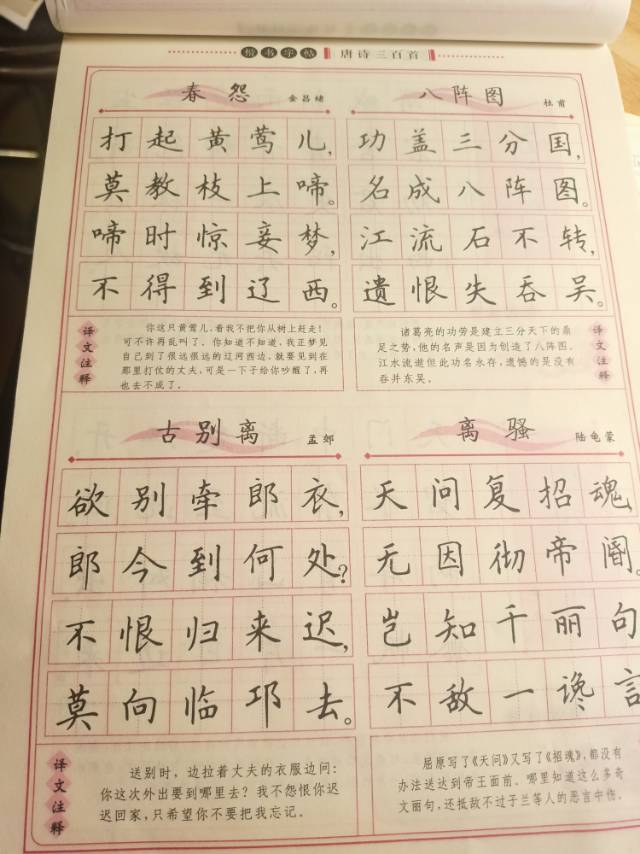 楷书字帖 唐诗三百首
春怨 金昌绪
打起黄莺儿,
莫教枝上啼。
啼时惊妾梦,
不得到辽西。
译文注释
你这只黄莺儿,看我不把你从树上赶走!
可不许再乱叫了。你知道不知道,我正梦见
自己到了很远很远的辽河西边,就要见到在
那里打仗的丈夫,可是一下子给你吵醒了,再
也去不成了。
八阵图 杜甫
功盖三分国,
名成八阵图。
江流石不转,
遗恨失吞吴。
诸葛亮的功劳是建立三分天下的鼎
足之势,他的名声是因为创造了八阵图。
江水流逝但此功名永存,遗憾的是没有
吞并东吴。
译文注释
古别离 孟郊
欲别牵郎衣,
郎今到何处?
不恨归来迟,
莫向临邛去。
译文注释
送别时,边拉着丈夫的衣服边问:
你这次外出要到哪里去?我不怨恨你迟
迟回家,只希望你不要把我忘记。
离骚 陆龟蒙
天问复招魂
无因彻帝阍。
岂知千丽句
不敌一谗言
屈原写了《天问》又写了《招魂》,都没有
办法送达到帝王面前。哪里知道这么多奇
文丽句,还抵敌不过子兰等人的恶言中伤。